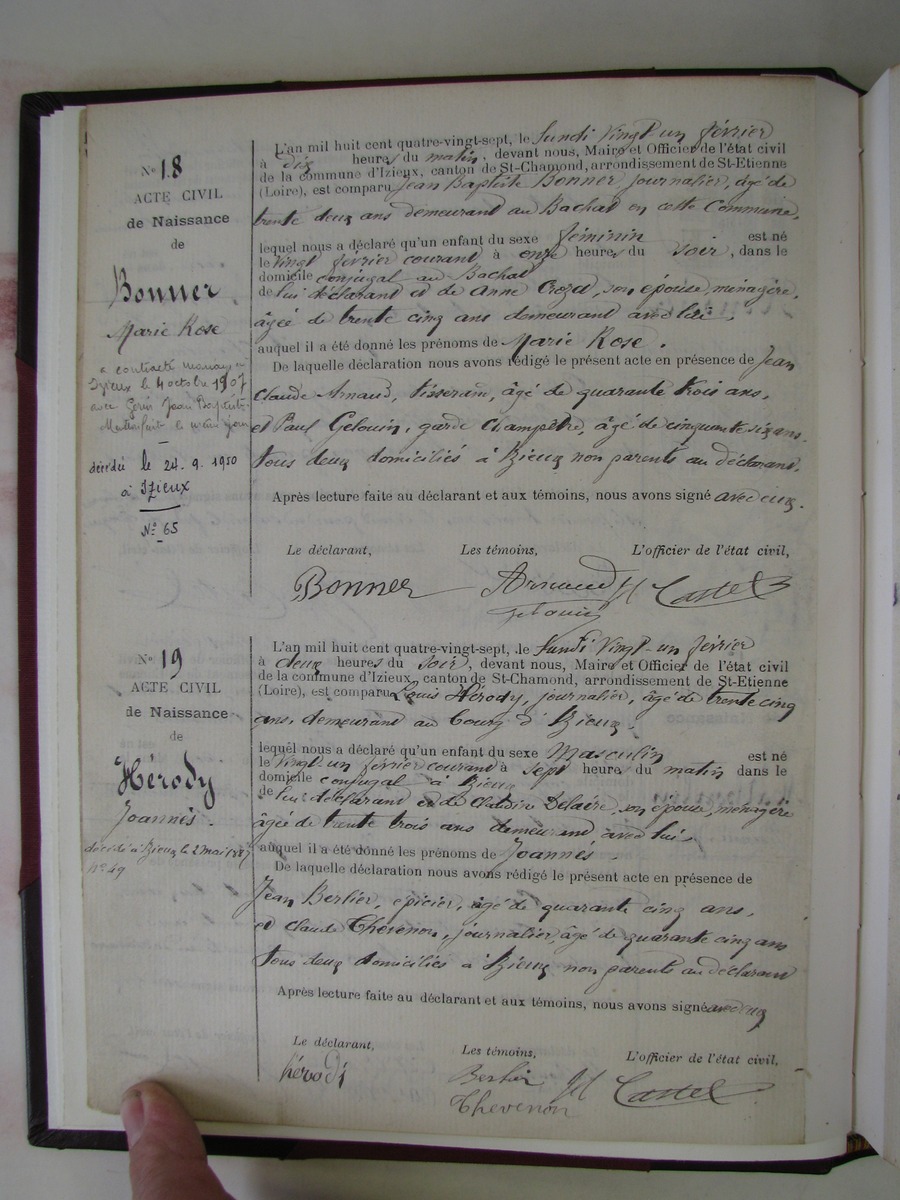 No 18
ACTE CIVIL
de Naissance
de
Bonner
Marie Rose
a contracté mariage à
Izieux le 4 octobre 1907
avec Jean Baptiste
décédée le 24.9.1950
à Izieux
No 65
L'an mil huit cent quatre-vingt-sept, le lundi vingt un février
à dix heures du matin, devant nous, Maire et Officier de l'état civil
de la commune d'Izieux, canton de St-Chamond, arrondissement de St-Etienne
(Loire), est comparu Jean Baptiste Bonner journalier, âgé de
trente deux ans demeurant au Bachat en cette Commune,
lequel nous a déclaré qu'un enfant du sexe féminin est né
le vingt février courant à onze heures du soir, dans le
domicile conjugal au Bachat
de lui déclarant et de Anne Crozet, son épouse, ménagère,
âgée de trente cinq ans demeurant avec lui,
auquel il a été donné les prénoms de Marie Rose.
De laquelle déclaration nous avons rédigé le présent acte en présence de Jean
Claude Arnaud, tisserand, âgé de quarante trois ans,
et Paul Gelouin, garde champêtre, âgé de cinquante six ans.
tous deux domiciliés à Izieux non parents au déclarant.
Après lecture faite au déclarant et aux témoins, nous avons signé avec eux.
Le déclarant, Les témoins, L'officier de l'état civil,
Bonner Arnaud Castel
Gelouin
No 19
ACTE CIVIL
de Naissance
de
Hérody
Joannès.
décédé à Izieux le 2 mai 1887
no 49
L'an mil huit cent quatre-vingt-sept, le lundi vingt-un février
à deux heures du soir, devant nous, Maire et Officier de l'état civil
de la commune d'Izieux, canton de St-Chamond, arrondissement de St-Etienne
(Loire), est comparu Louis Hérody, journalier, âgé de trente cinq
ans, demeurant au bourg d'Izieux.
lequel nous a déclaré qu'un enfant du sexe Masculin est né
le vingt un février courant à sept heures du matin dans le
domicile conjugal à Izieux
de lui déclarant et de Claudine Delaire, son épouse, ménagère
âgée de trente trois ans demeurant avec lui.
auquel il a été donné les prénoms de Joannès.
De laquelle déclaration nous avons rédigé le présent acte en présence de
Jean Berlier, épicier, âgé de quarante cinq ans,
et Claude Thevenon, journalier, âgé de quarante cinq ans
tous deux domiciliés à Izieux non parents au déclarant
Après lecture faite au déclarant et aux témoins, nous avons signé avec eux
Le déclarant, Les témoins, L'officier de l'état civil,
hérodi Berlier Castel
Thevenon